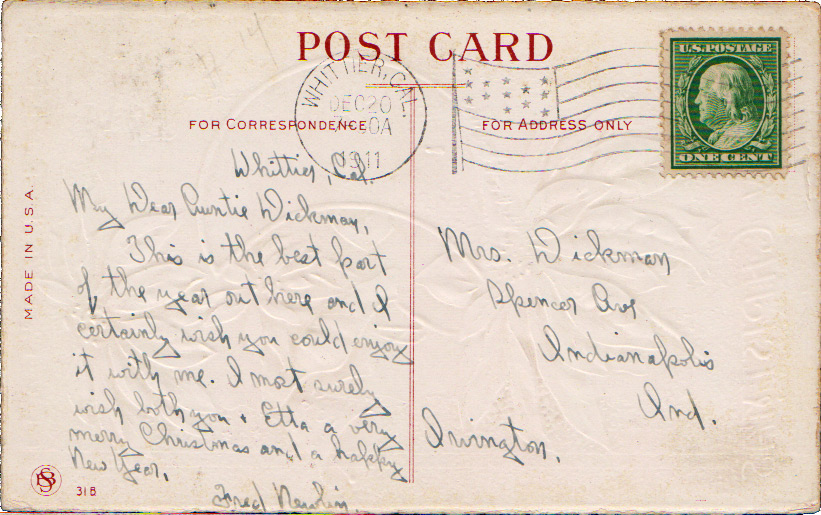 POST CARD
WHITTIER, CAL.
DEC 20
1911
FOR CORRESPONDENCE
FOR ADDRESS ONLY
U.S. POSTAGE
ONE CENT
MADE IN U.S.A.
Whittier, Cal.
My Dear Auntie Dickman,
This is the best part
of the year out here and I
certainly wish you could enjoy
it with me. I most surely
wish both you + Etta a very
merry Christmas and a happy
New Year,
Fred Newlin.
Mrs. Dickman
Spencer Ave
Indianapolis
Ind.
Irvington.
318